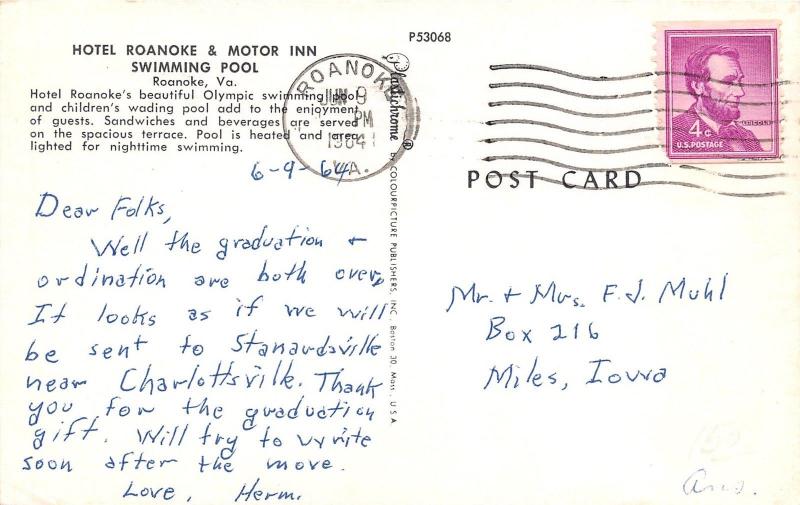 HOTEL ROANOKE & MOTOR INN
SWIMMING POOL
Roanoke, Va.
Hotel Roanoke's beautiful Olympic swimming pool
and children's wading pool add to the enjoyment
of guests. Sandwiches and beverages are served
on the spacious terrace. Pool is heated and area
lighted for nighttime swimming.
P53068
ROANOKE
JUN 9
PM
1964
VA.
4¢
LINCOLN
U.S. POSTAGE
POST CARD
Plastichrome®
by COLOURPICTURE PUBLISHERS, INC. Boston 30, Mass., U.S.A.
6-9-64
Dear Folks,
Well the graduation +
ordination are both over,
It looks as if we will
be sent to Stanardsville
near Charlottsville. Thank
you for the graduation
gift. Will try to write
soon after the move.
Love, Herm.
Mr. + Mrs. F.J. Muhl
Box 216
Miles, Iowa
150